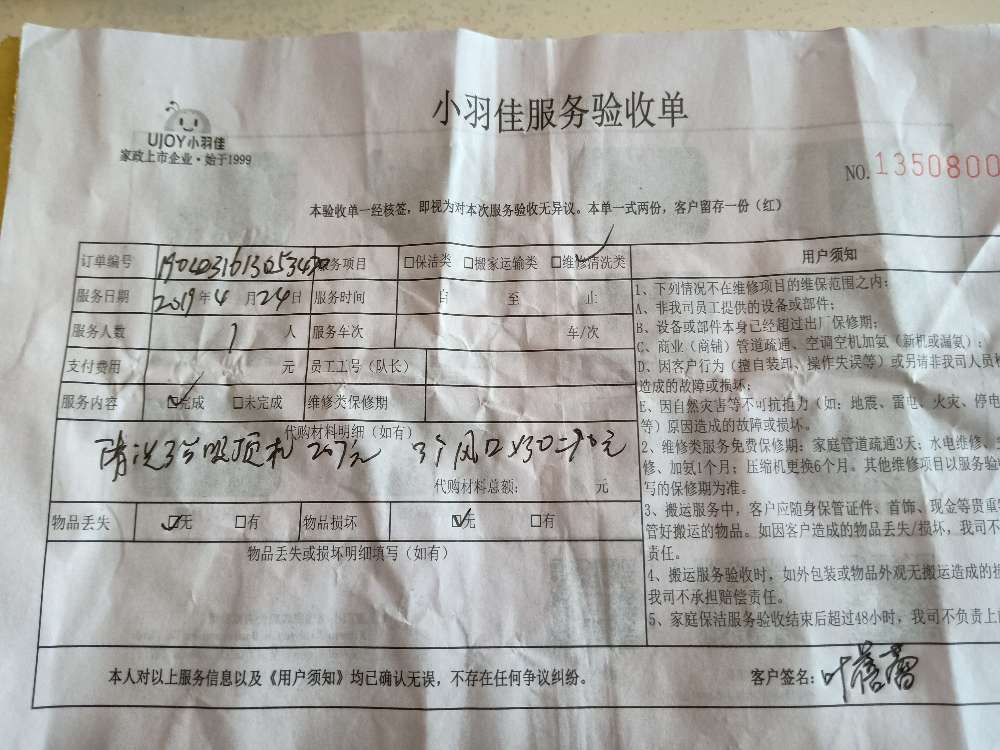 小羽佳服务验收单
UJOY小羽佳
家政上市企业·始于1999
NO.1350800
本验收单一经核签，即视为对本次服务验收无异议。本单一式两份，客户留存一份（红）
订单编号 服务项目 □保洁类 □搬家运输类 ☑维修清洗类
服务日期 2019年4月24日 服务时间 自 至 止
服务人数 1 人 服务车次 车/次
支付费用 元 员工工号（队长）
服务内容 ☑完成 □未完成 维修类保修期
代购材料明细（如有）
清洗3台吸顶机 207元 3个风口X30=90元
代购材料总额： 元
物品丢失 ☑无 □有 物品损坏 ☑无 □有
物品丢失或损坏明细填写（如有）
用户须知
1、下列情况不在维修项目的维保范围之内：
A、非我司员工提供的设备或部件；
B、设备或部件本身已经超过出厂保修期；
C、商业（商铺）管道疏通、空调空机加氨（新机或漏氨）；
D、因客户行为（擅自装卸、操作失误等）或另请非我司人员
造成的故障或损坏；
E、因自然灾害等不可抗拒力（如：地震、雷电、火灾、停电
等）原因造成的故障或损坏。
2、维修类服务免费保修期：家庭管道疏通3天；水电维修、
修、加氨1个月；压缩机更换6个月。其他维修项目以服务验
写的保修期为准。
3、搬运服务中，客户应随身保管证件、首饰、现金等贵重
管好搬运的物品。如因客户造成的物品丢失/损坏，我司不
责任。
4、搬运服务验收时，如外包装或物品外观无搬运造成的
我司不承担赔偿责任。
5、家庭保洁服务验收结束后超过48小时，我司不负责上
本人对以上服务信息以及《用户须知》均已确认无误，不存在任何争议纠纷。 客户签名：